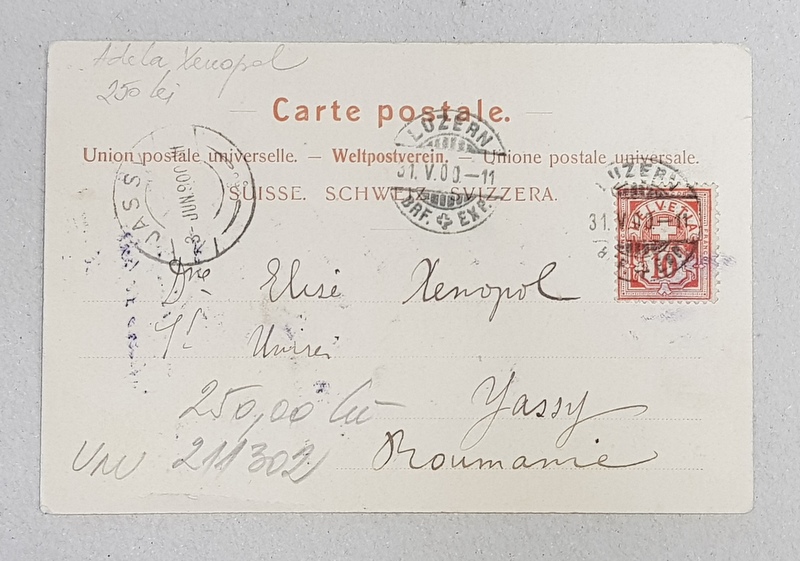 Adela Xenopol
250 lei
Carte postale.
Union postale universelle. – Weltpostverein. – Unione postale universale.
SUISSE. SCHWEIZ. SVIZZERA.
LUZERN
31.V.00–11
BRF. EXP.
LUZERN
31.V.00–11
HELVETIA
10
JASSI
JUN 900
Elisé Xenopol
Unirei
Yassy
Roumanie
250,00 lei
211302